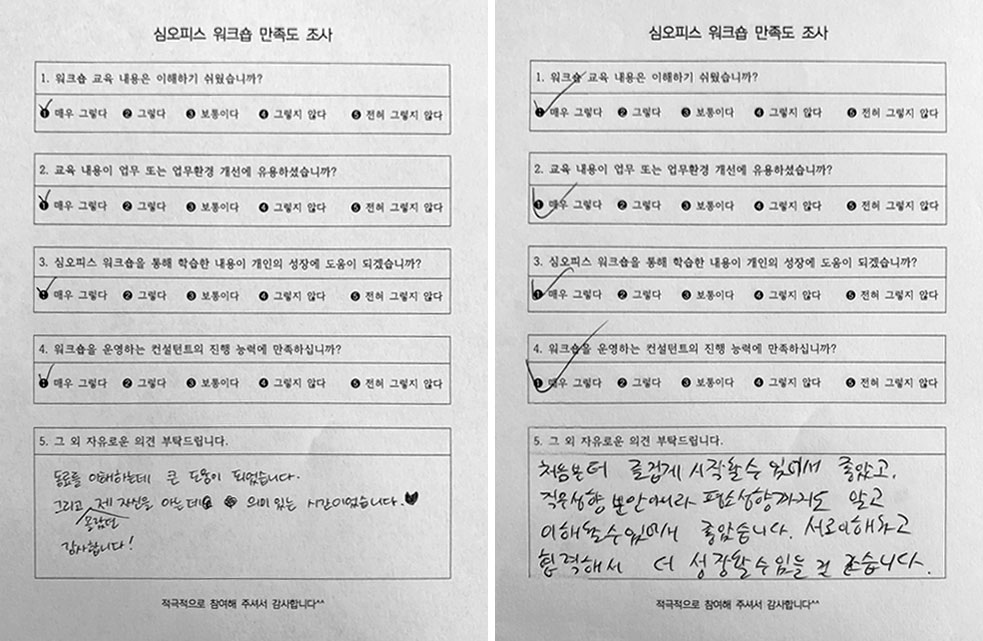 심오피스 워크숍 만족도 조사
1. 워크숍 교육 내용은 이해하기 쉬웠습니까?
❶ 매우 그렇다 ❷ 그렇다 ❸ 보통이다 ❹ 그렇지 않다 ❺ 전혀 그렇지 않다
2. 교육 내용이 업무 또는 업무환경 개선에 유용하셨습니까?
❶ 매우 그렇다 ❷ 그렇다 ❸ 보통이다 ❹ 그렇지 않다 ❺ 전혀 그렇지 않다
3. 심오피스 워크숍을 통해 학습한 내용이 개인의 성장에 도움이 되겠습니까?
❶ 매우 그렇다 ❷ 그렇다 ❸ 보통이다 ❹ 그렇지 않다 ❺ 전혀 그렇지 않다
4. 워크숍을 운영하는 컨설턴트의 진행 능력에 만족하십니까?
❶ 매우 그렇다 ❷ 그렇다 ❸ 보통이다 ❹ 그렇지 않다 ❺ 전혀 그렇지 않다
5. 그 외 자유로운 의견 부탁드립니다.
동료를 이해하는데 큰 도움이 되었습니다.
그리고 제 자신을 아는데 의미 있는 시간이었습니다.
몰랐던
감사합니다!
적극적으로 참여해 주셔서 감사합니다^^
심오피스 워크숍 만족도 조사
1. 워크숍 교육 내용은 이해하기 쉬웠습니까?
❶ 매우 그렇다 ❷ 그렇다 ❸ 보통이다 ❹ 그렇지 않다 ❺ 전혀 그렇지 않다
2. 교육 내용이 업무 또는 업무환경 개선에 유용하셨습니까?
❶ 매우 그렇다 ❷ 그렇다 ❸ 보통이다 ❹ 그렇지 않다 ❺ 전혀 그렇지 않다
3. 심오피스 워크숍을 통해 학습한 내용이 개인의 성장에 도움이 되겠습니까?
❶ 매우 그렇다 ❷ 그렇다 ❸ 보통이다 ❹ 그렇지 않다 ❺ 전혀 그렇지 않다
4. 워크숍을 운영하는 컨설턴트의 진행 능력에 만족하십니까?
❶ 매우 그렇다 ❷ 그렇다 ❸ 보통이다 ❹ 그렇지 않다 ❺ 전혀 그렇지 않다
5. 그 외 자유로운 의견 부탁드립니다.
처음부터 즐겁게 시작할수 있어서 좋았고,
직무성향 뿐만아니라 평소성향까지도 알고
이해할수있어서 좋았습니다. 서로이해하고
협력해서 더 성장할수있을 것 같습니다.
적극적으로 참여해 주셔서 감사합니다^^